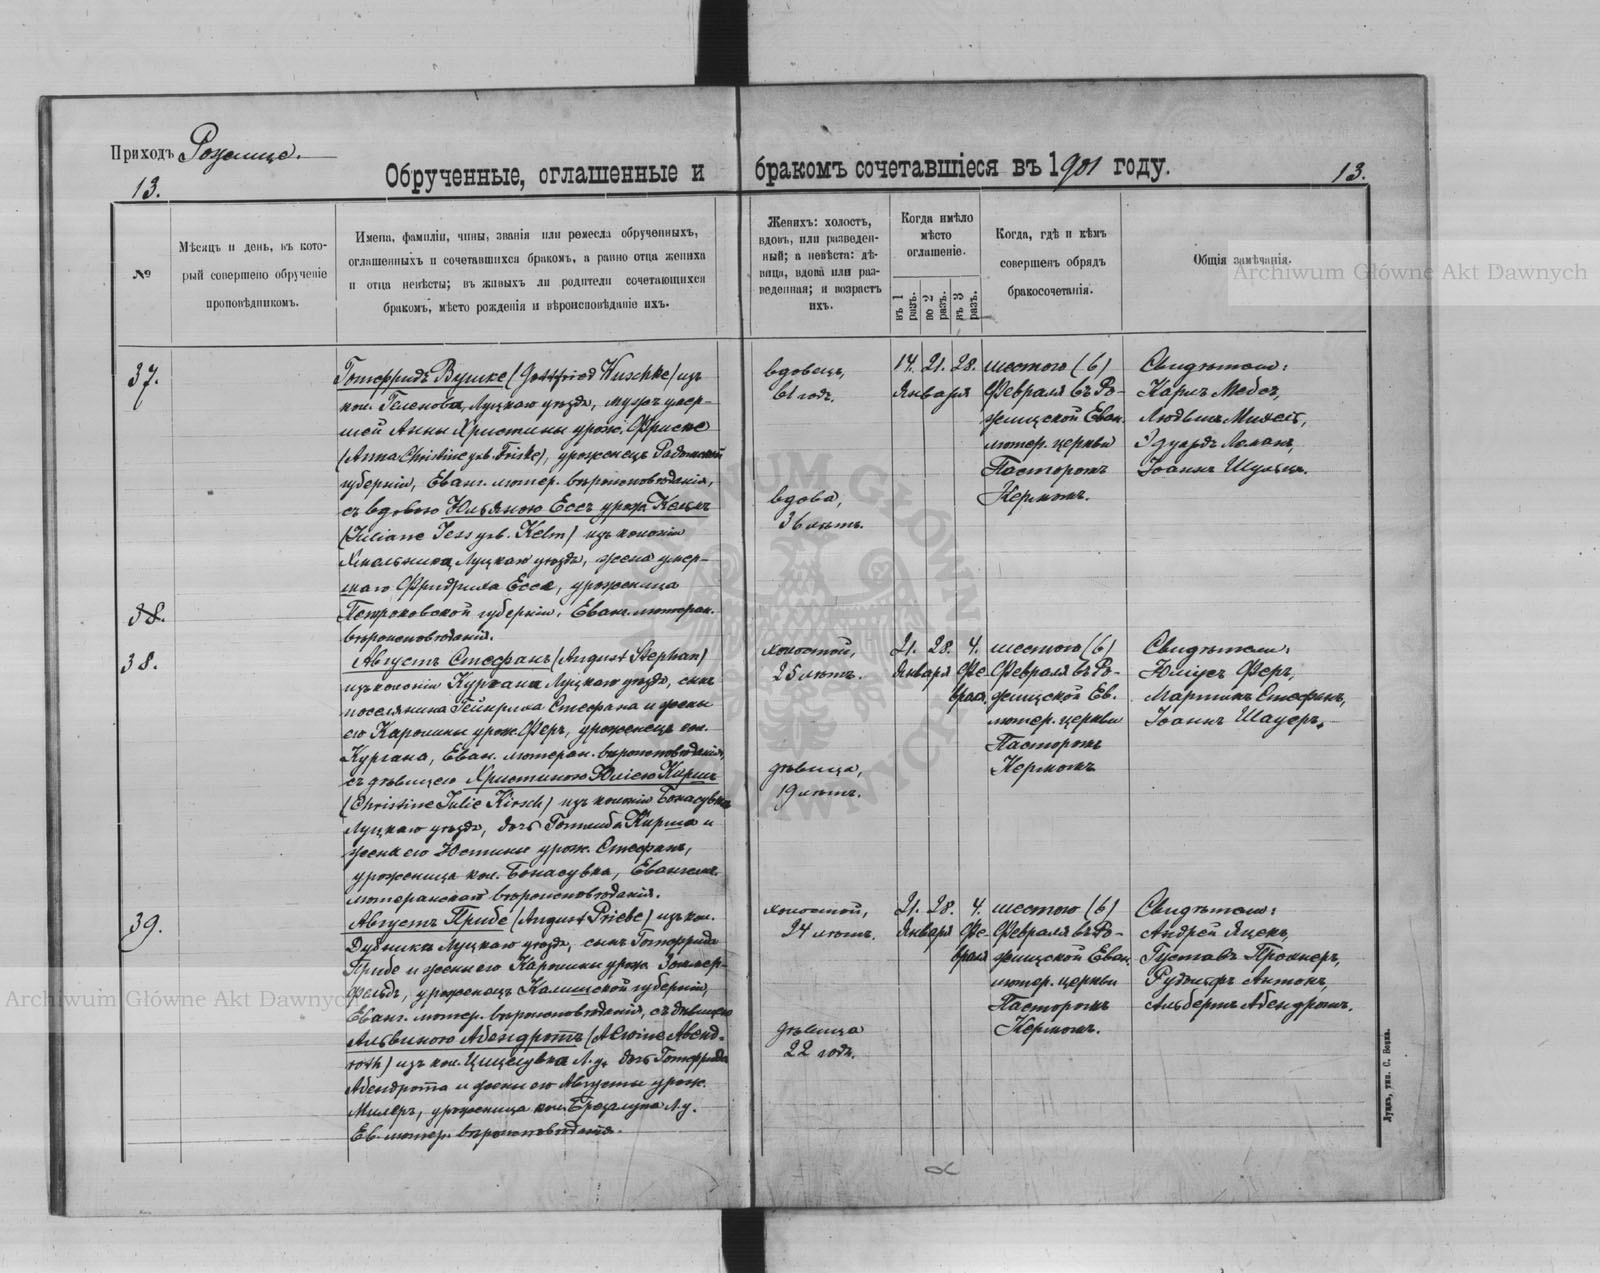 Приходъ Рожище.
13.
Обрученные, оглашенные и бракомъ сочетавшіеся въ 1901 году.
13.
№
Мѣсяцъ и день, въ кото-
рый совершено обрученіе
проповѣдникомъ.
Имена, фамиліи, чины, званія или ремесла обрученныхъ,
оглашенныхъ и сочетавшихся бракомъ, а равно отца жениха
и отца невѣсты; въ живыхъ ли родители сочетающихся
бракомъ, мѣсто рожденія и вѣроисповѣданіе ихъ.
Женихъ: холостъ,
вдовъ, или разведен-
ный; а невѣста: дѣ-
вица, вдова или раз-
веденная; и возрастъ
ихъ.
Когда имѣло
мѣсто
оглашеніе.
въ 1
разъ.
во 2
разъ.
въ 3
разъ.
Когда, гдѣ и кѣмъ
совершенъ обрядъ
бракосочетанія.
Общія замѣчанія.
Archiwum Główne Akt Dawnych
37.
Готфридъ Вушке (Gottfried Wuschke) изъ
кол. Геленовка, Луцкаго уѣзда, мужъ умер-
шей Анны Христины урож. Фриске
(Anna Christine geb. Friske), уроженецъ Радомской
губерніи, Еванг. лютер. вѣроисповѣданія,
съ вдовою Юльяною Ессъ урож. Кельмъ
(Juliane Jess geb. Kelm) изъ колоніи
Хмельника, Луцкаго уѣзда, жена умер-
шаго Фридриха Есса, уроженица
Петроковской губерніи, Еванг. лютеран.
вѣроисповѣданія.
вдовецъ,
61 годъ.
вдова,
36 лѣтъ.
14. 21. 28.
Января
шестого (6)
Февраля въ Ро-
жищской Еван.
лютер. церкви
Пасторомъ
Кермомъ.
Свидѣтели:
Карлъ Мебсъ,
Людвигъ Михель,
Эдуардъ Ломанъ,
Іоаннъ Шульцъ.
38.
38.
Августъ Стефанъ (August Stephan)
изъ колоніи Кургана Луцкаго уѣзда, сынъ
поселянина Гейнриха Стефана и жены
его Каролины урож. Феръ, уроженецъ кол.
Кургана, Еван. лютеран. вѣроисповѣданія,
съ дѣвицею Христиною Юліею Киршъ
(Christine Julie Kirsch) изъ колоніи Бокасувка
Луцкаго уѣзда, дочь Готлиба Кирша и
жены его Юстины урож. Стефанъ,
уроженица кол. Бокасувка, Евангел.
лютеранскаго вѣроисповѣданія.
холостой,
25 лѣтъ.
дѣвица,
19 лѣтъ.
21. 28. 4.
Января Фе-
враля
шестого (6)
Февраля въ Ро-
жищской Ев.
лютер. церкви
Пасторомъ
Кермомъ
Свидѣтели:
Юліусъ Феръ,
Мартинъ Стефанъ,
Іоаннъ Шауеръ.
39.
Августъ Прибе (August Priebe) изъ кол.
Дубники Луцкаго уѣзда, сынъ Готфрида
Прибе и жены его Каролины урож. Зоммер-
фельдъ, уроженецъ Калишской губерніи,
Еванг. лютер. вѣроисповѣданія, съ дѣвицею
Альвиною Абендротъ (Alwine Abend-
roth) изъ кол. Цицелувка Л. у. дочь Готфрида
Абендрота и жены его Августы урож.
Милеръ, уроженица кол. Брезалупа Л. у.
Ев. лютер. вѣроисповѣданія.
холостой,
24 лѣтъ.
дѣвица
22 годъ.
21. 28. 4.
Января Фе-
враля
шестого (6)
Февраля въ Ро-
жищской Еван.
лютер. церкви
Пасторомъ
Кермомъ.
Свидѣтели:
Андрей Яцекъ,
Густавъ Прокнеръ,
Рудольфъ Антонъ,
Альбертъ Абендротъ.
Archiwum Główne Akt Dawnych
Луцкъ, тип. С. Бокка.